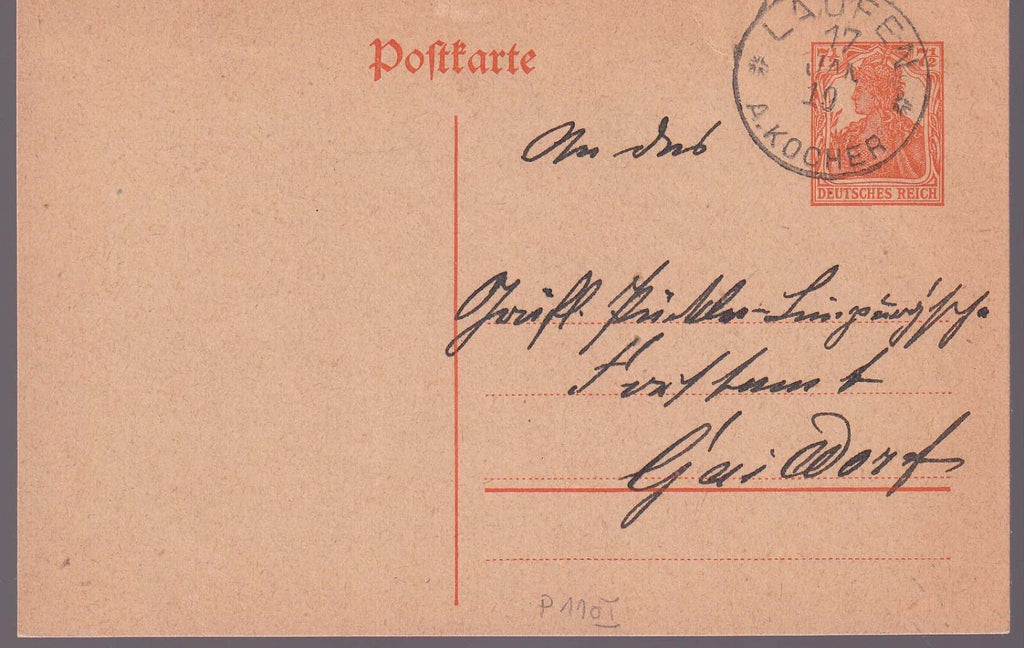 Postkarte
LAUFEN
17
JAN
19
A. KOCHER
7½ 7½
DEUTSCHES REICH
An das
Gräfl. Pückler-Limpurg'sche
Forstamt
Gaildorf
P 110 I